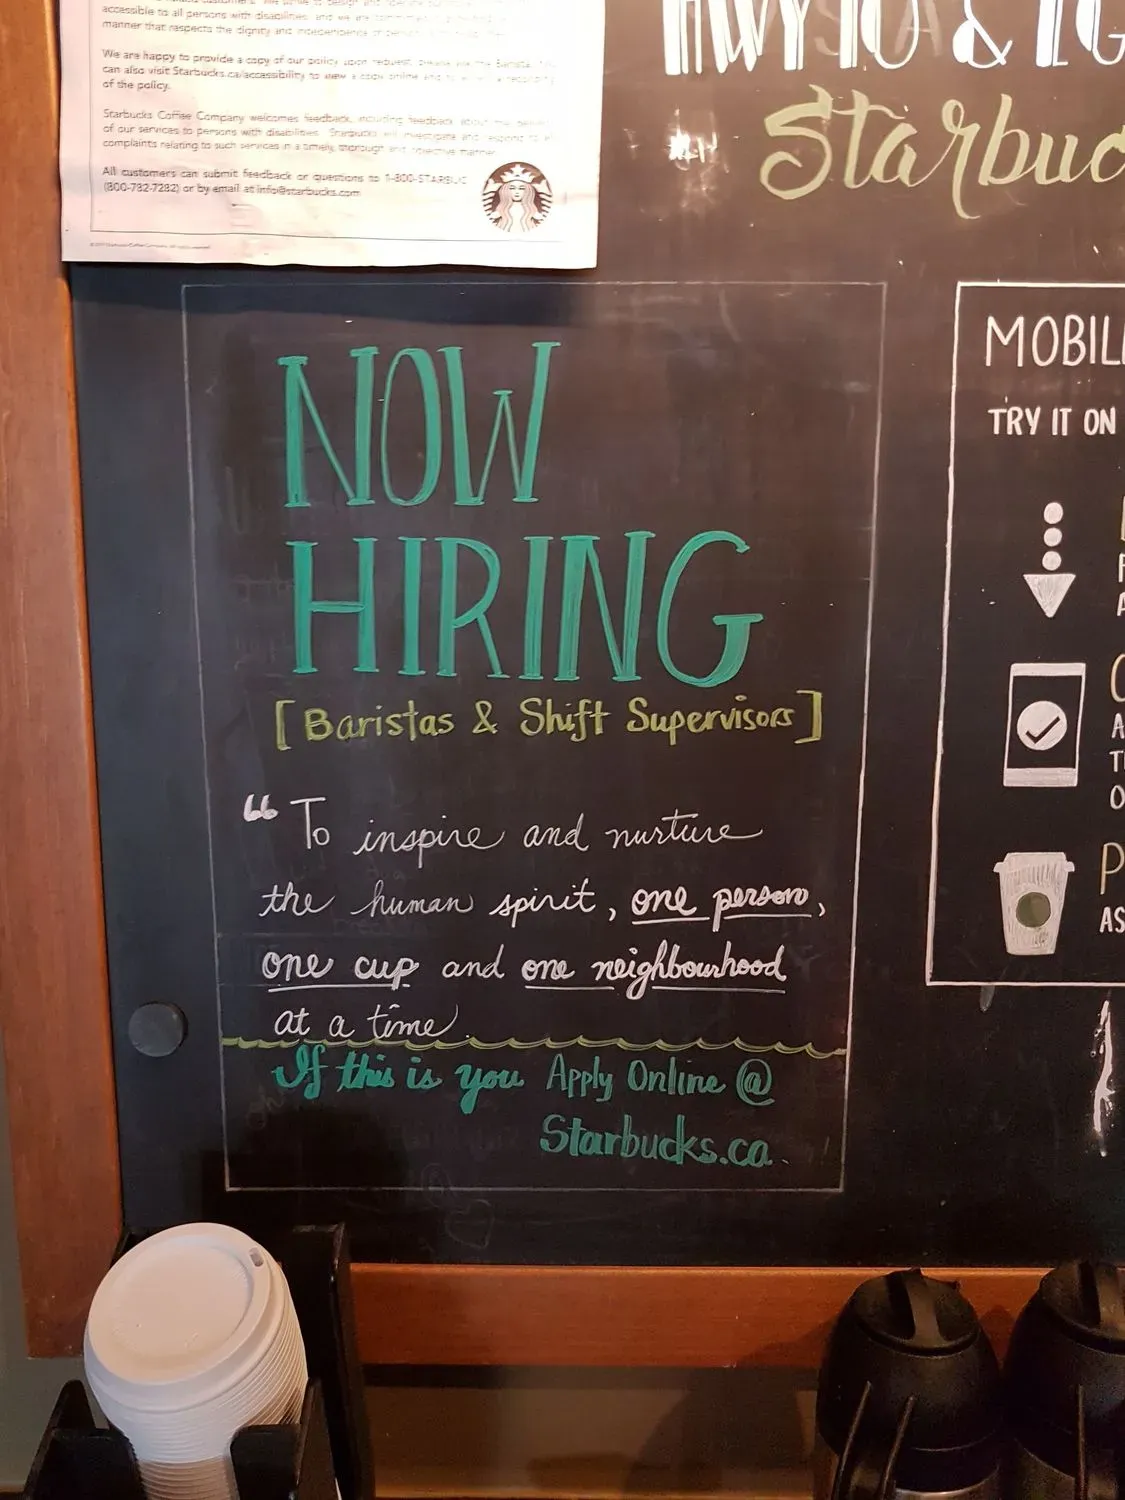 accessible to all persons with disabilities, and we are
manner that respects the dignity and independence of
We are happy to provide a copy of our policy upon request, please
can also visit Starbucks.ca/accessibility to view a copy online
of the policy.
Starbucks Coffee Company welcomes feedback, including feedback about the
of our services to persons with disabilities. Starbucks will investigate and respond to
complaints relating to such services in a timely, thorough and objective manner.
All customers can submit feedback or questions to 1-800-STARBUC
(800-782-7282) or by email at info@starbucks.com
HWY 10 &
Starbuc
NOW
HIRING
[Baristas & Shift Supervisors]
“ To inspire and nurture
the human spirit, one person,
one cup and one neighbourhood
at a time.
If this is you Apply Online @
Starbucks.ca.
MOBIL
TRY IT ON